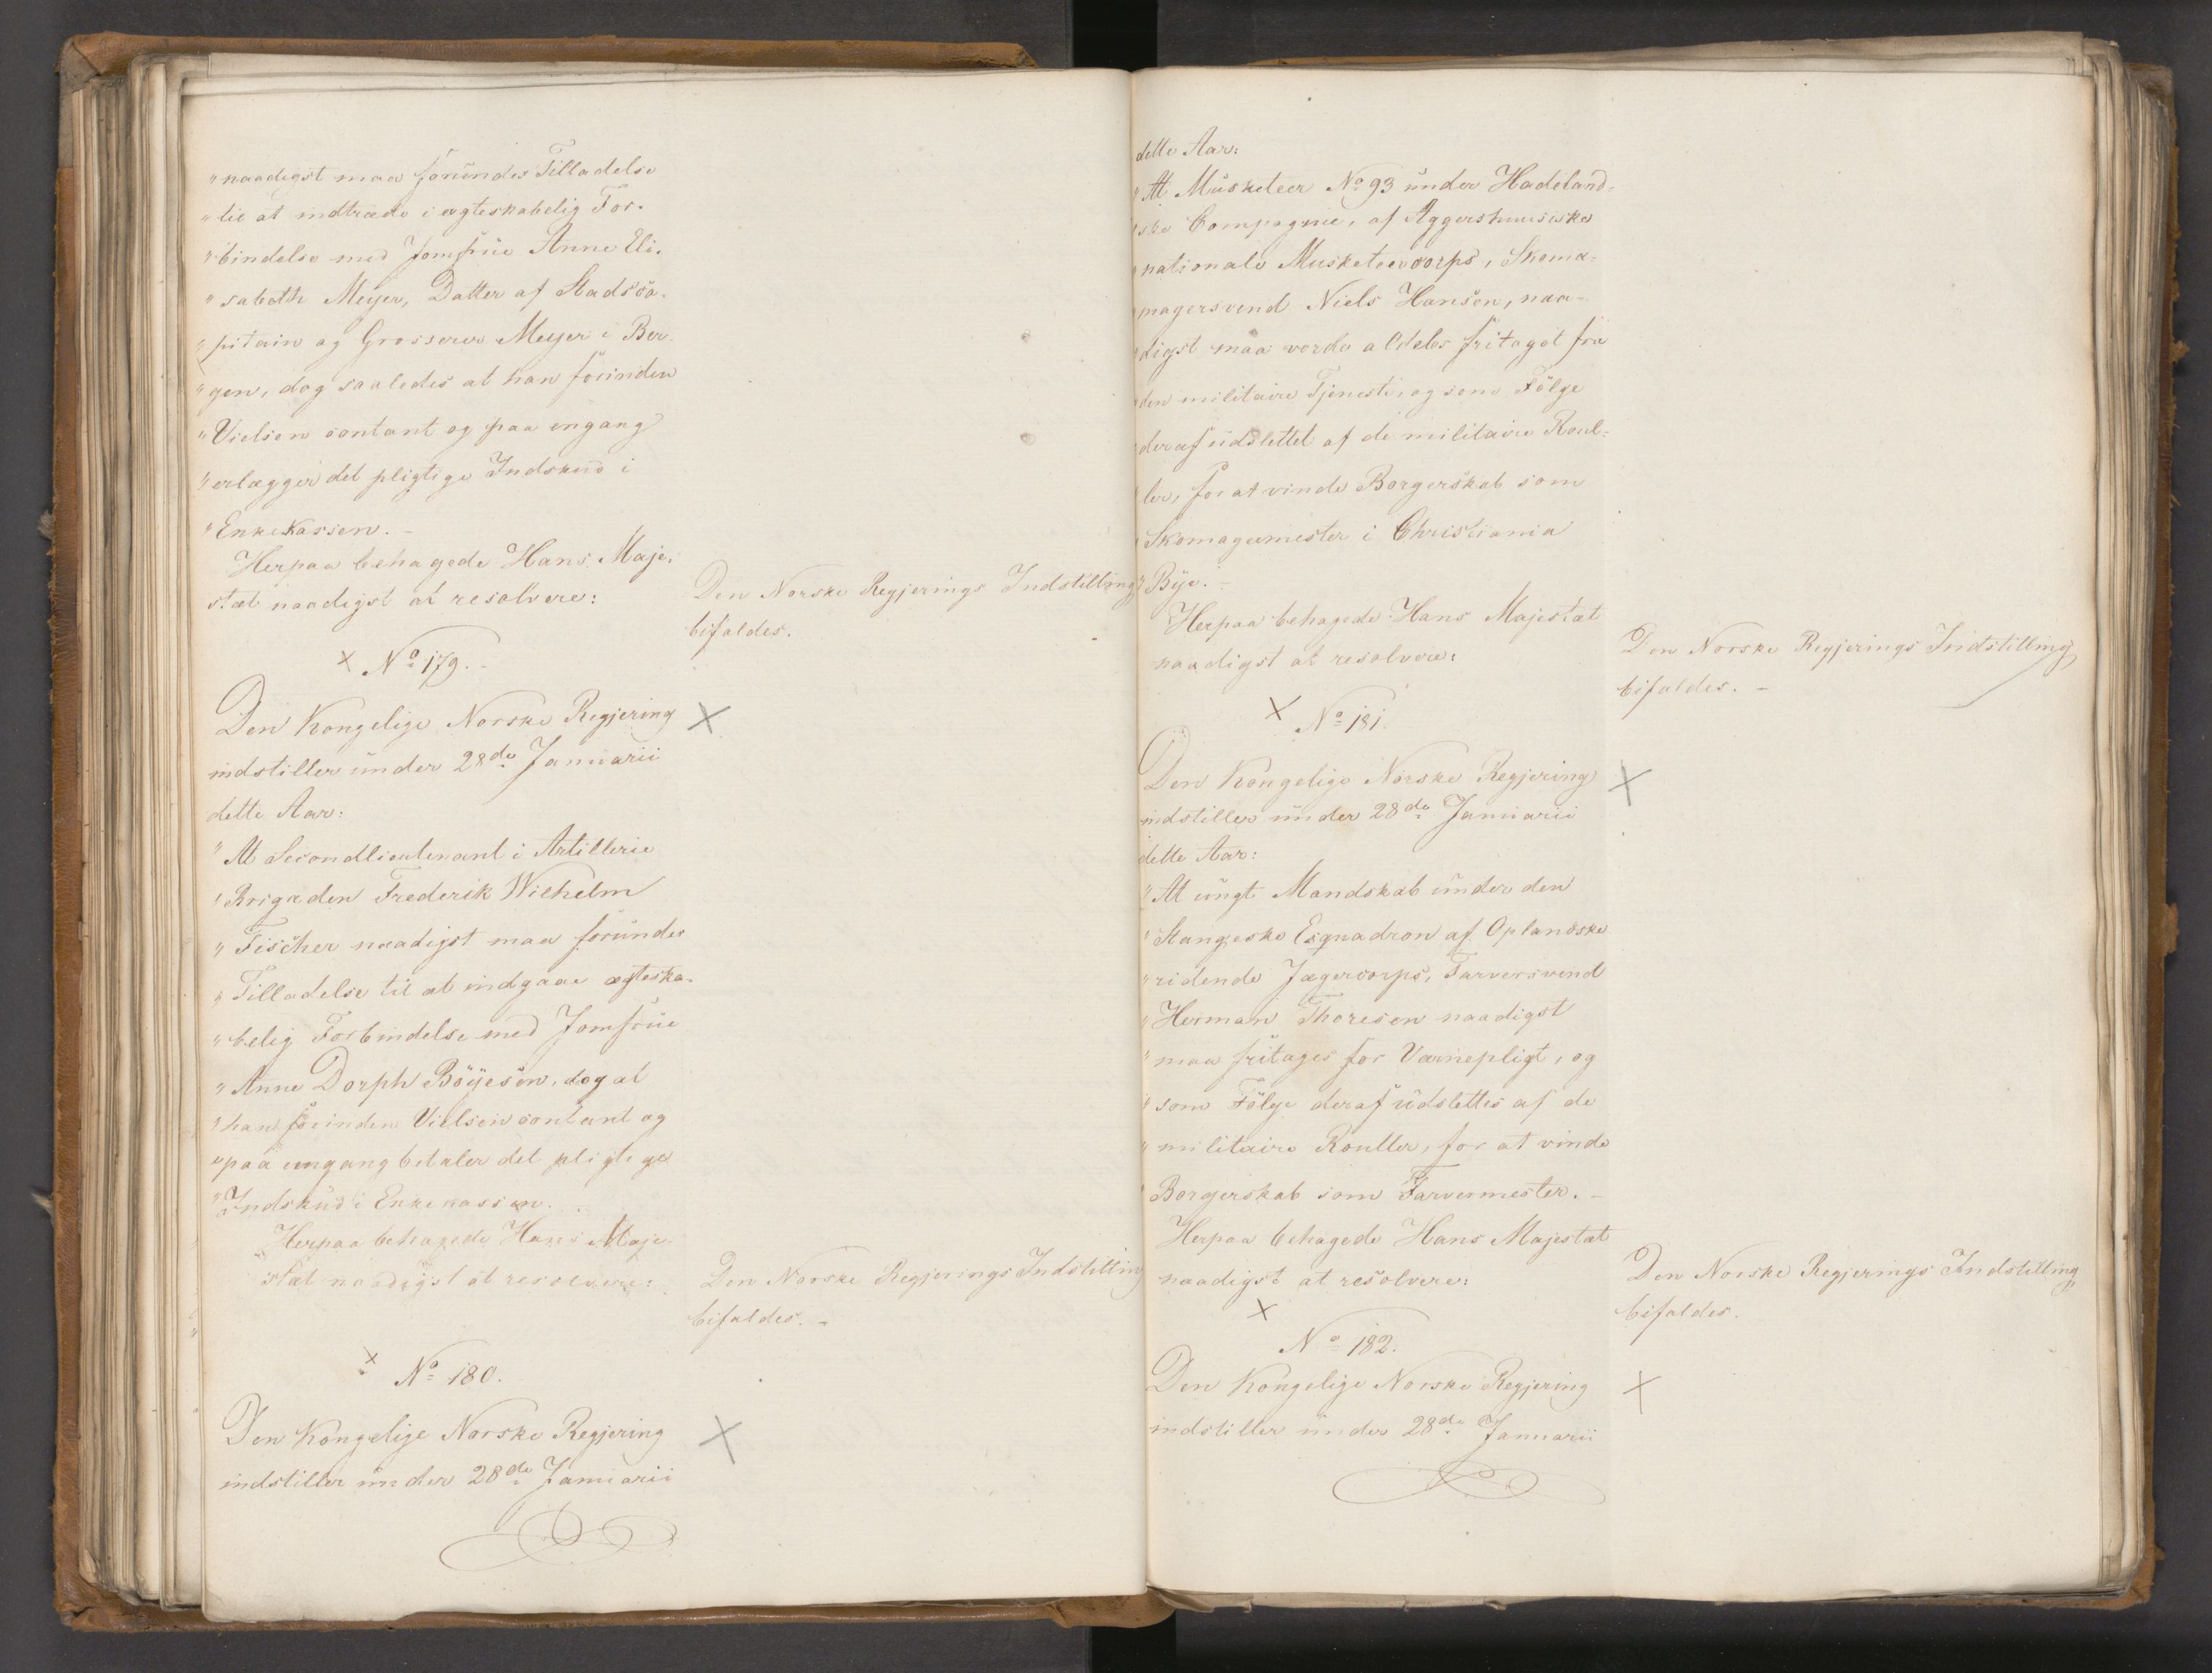 "naadigst maa foründes Tilladelse
"til at indtræde i ægteskabelig For-
"bindelse med Jomfrüe Anne Eli-
"sabeth Meyer, Datter af Stadsca-
"pitain og Grosserer Meyer i Ber-
"gen, dog saaledes at han forinden
"Vielsen contant og paa engang
"erlægger det pligtige Indskud i
"Enkekassen.-
Herpaa behagede Hans Maje-
stæt naadigst at resolvere:
Den Norske Regjerings Indstilling
bifaldes.
× No 179.-
Den Kongelige Norske Regjering ×
indstiller ünder 28de Januarii
dette Aar:
"At Secondlieutenant i Artillerie
"Brigaden Frederik Wilhelm
"Fischer naadigst maa forundes
"Tilladelse til at indgaae ægteska-
"belig Forbindelse med Jomfrüe
"Anne Dorph Böÿesen, dog at
"han forinden Vielsen contant og
"paa engang betaler det pligtige
"Indskud i Enkekassen.
Herpaa behagede Hans Maje-
stæt naadigst at resolvere:
Den Norske Regjerings Indstilling
bifaldes.-
× No 180.
Den Kongelige Norske Regjering ×
indstiller ünder 28de Januarii
dette Aar:
"At Müsketeer No 93 ünder Hadeland-
"ske Compagnie, af Aggershuusiske
"nationale Musketeercorps, Skoma-
"magersvend Niels Hansen, naa-
"digst maa vorde aldeles fritaget fra
"den militaire Tjeneste, og som Fölge
"deraf üdslettet af de militaire Roul-
"ler, for at vinde Borgerskab som
"Skomagermester i Christiania
"Bÿe.-
Herpaa behagede Hans Majestæt
naadigst at resolvere:
Den Norske Regjerings Indstilling
bifaldes.-
× No 181.
Den Kongelige Norske Regjering ×
indstiller ünder 28de Januarii
dette Aar:
"At üngt Mandskab ünder den
"Stangeske Esquadron af Oplandske
"ridende Jægercorps, Farversvend
"Herman Thoresen naadigst
"maa fritages for Værnepligt, og
"som Fölge deraf üdslettes af de
"militaire Rouller, for at vinde
"Borgerskab som Farvermester.-
Herpaa behagede Hans Majestæt
naadigst at resolvere:
Den Norske Regjerings Indstilling
bifaldes.
×
No 182.
Den Kongelige Norske Regjering ×
indstiller ünder 28de Januarii